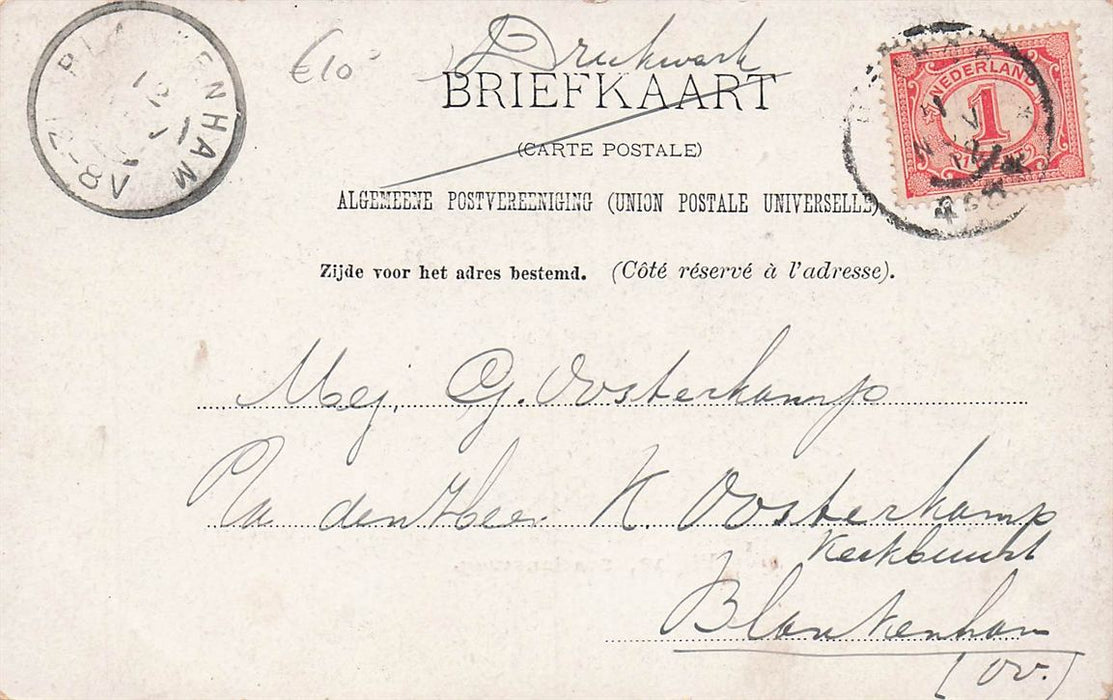 €10
Drukwerk
BRIEFKAART
(CARTE POSTALE)
ALGEMEENE POSTVEREENIGING (UNION POSTALE UNIVERSELLE)
Zijde voor het adres bestemd. (Côté réservé à l'adresse).
NEDERLAND
1
BLANKENHAM
7-8V
Mej. G. Oosterkamp
P/a den Heer K. Oosterkamp
Kerkbuurt
Blankenham
(Ov.)